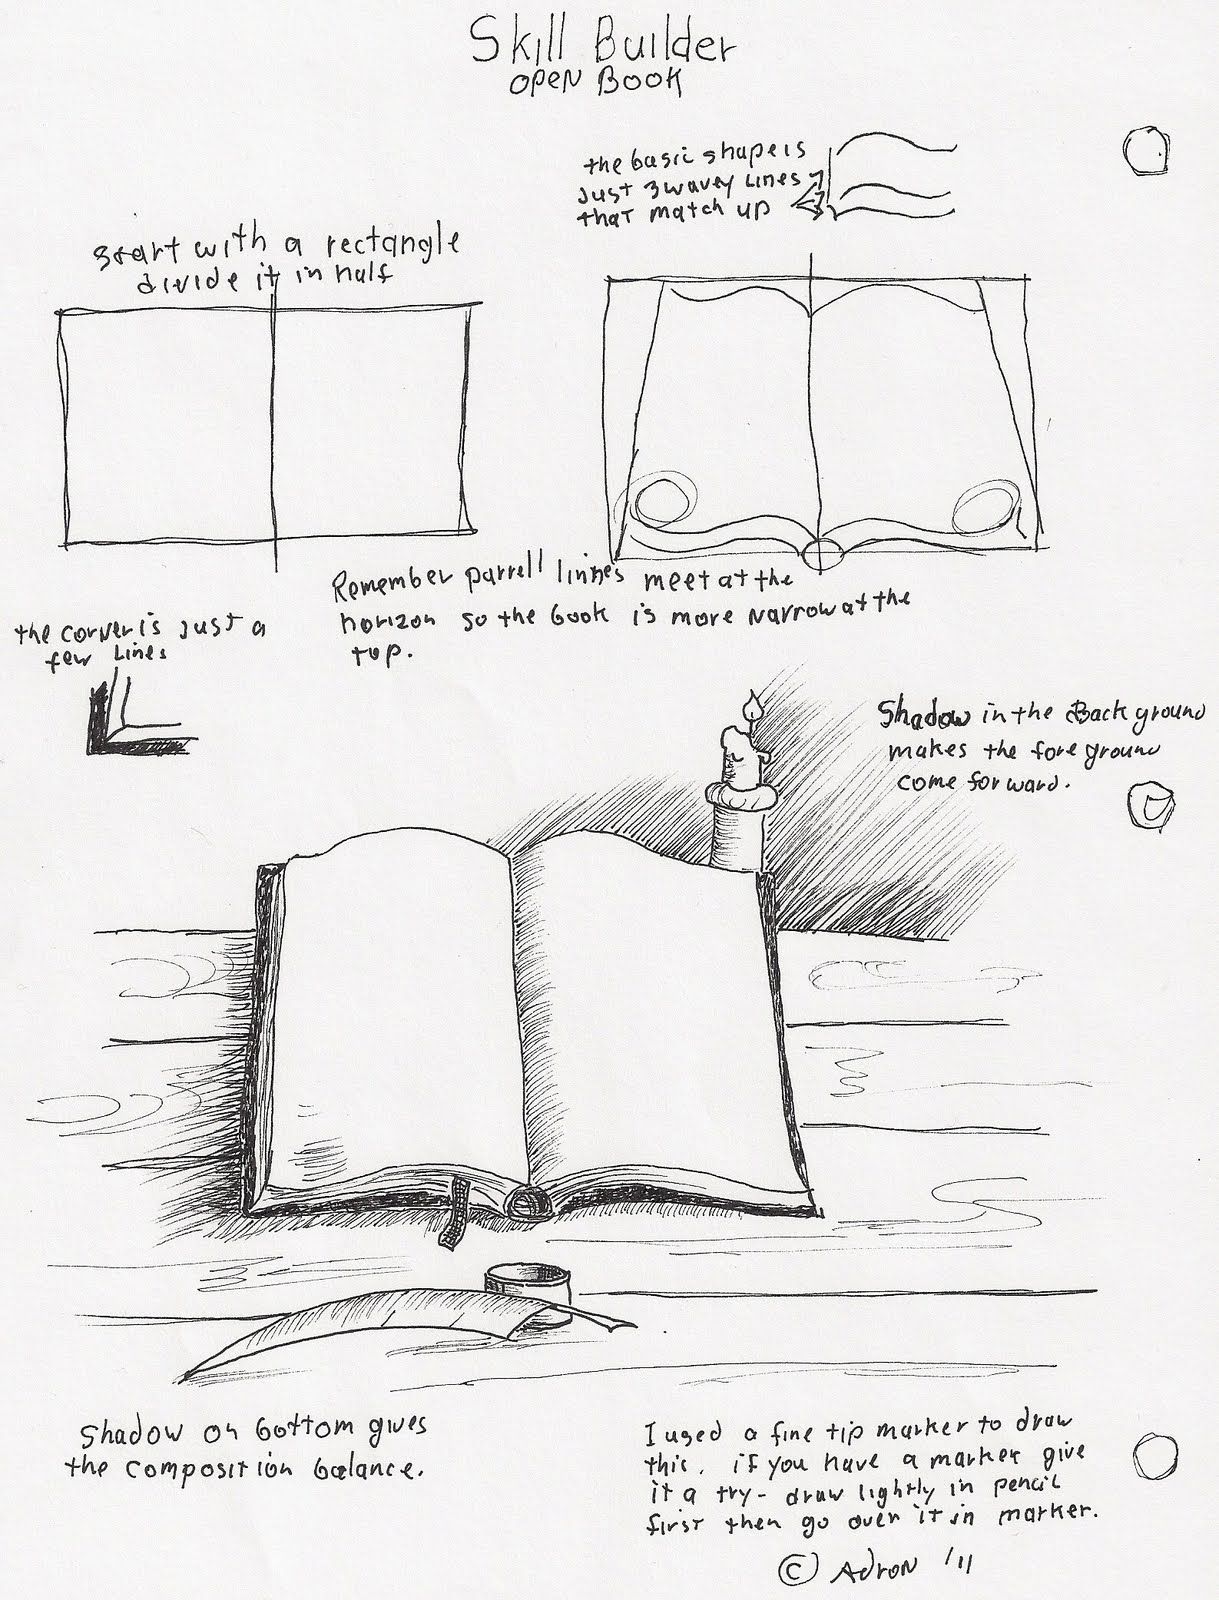 Skill Builder
OPEN BOOK
the basic shape is
Just 3 wavey Lines
that match up
Start with a rectangle
divide it in half
Remember parrell linnes meet at the
horizon so the book is more narrow at the
top.
the corner is just a
few Lines
Shadow in the Background
makes the foreground
come forward.
Shadow on bottom gives
the composition balance.
I used a fine tip marker to draw
this. if you have a marker give
it a try - draw lightly in pencil
first then go over it in marker.
© Adron '11